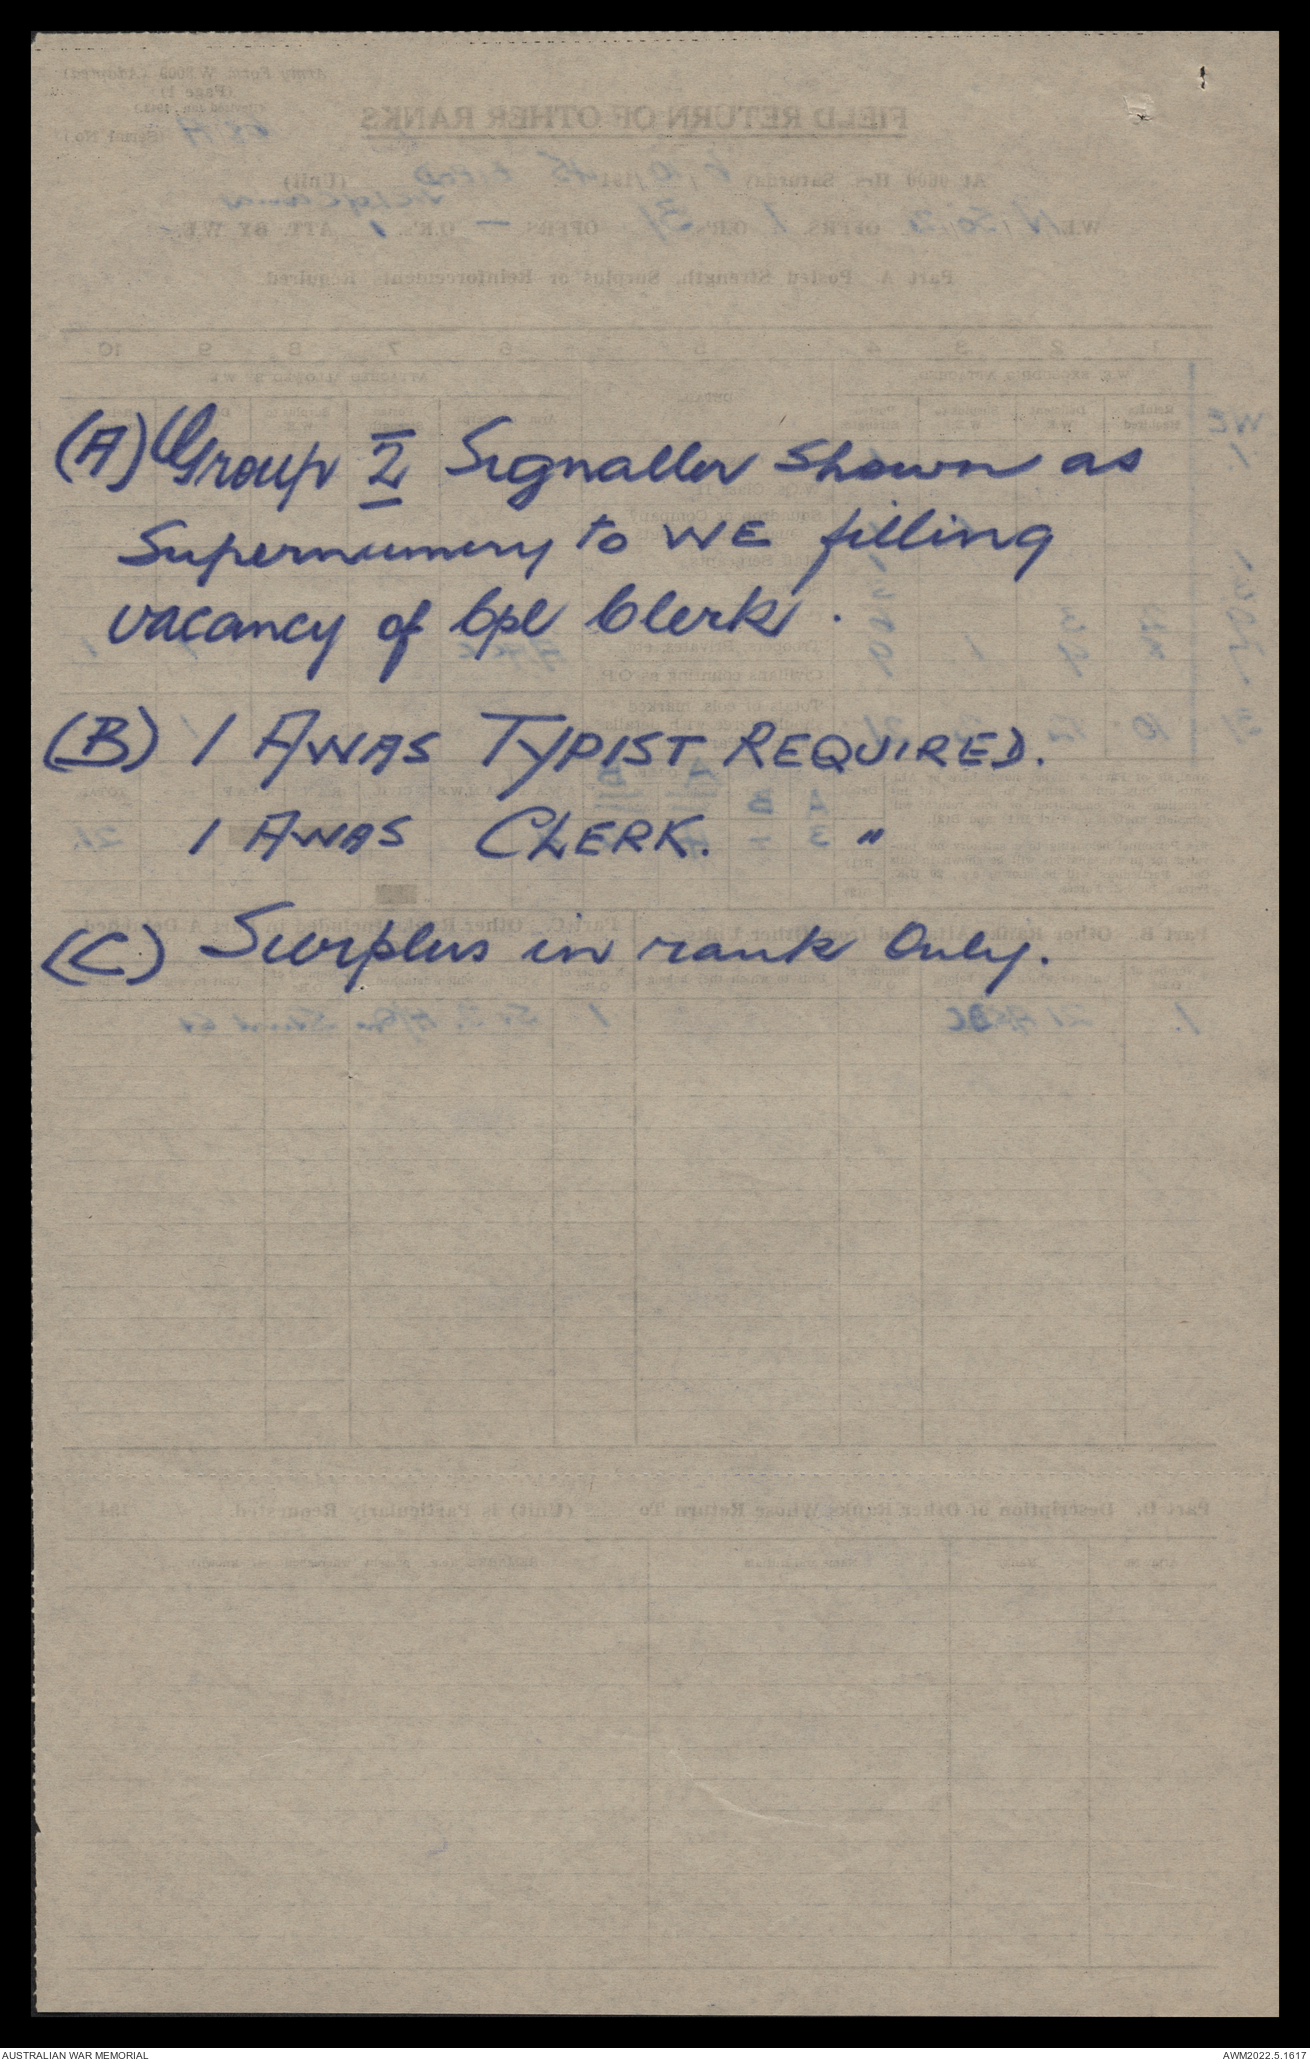 (A) Group II Signaller shown as
Supernumery to WE filling
vacancy of Cpl Clerk.
(B) 1 AWAS TYPIST REQUIRED.
1 AWAS CLERK. "
(C) Surplus in rank Only.
AUSTRALIAN WAR MEMORIAL
AWM2022.5.1617